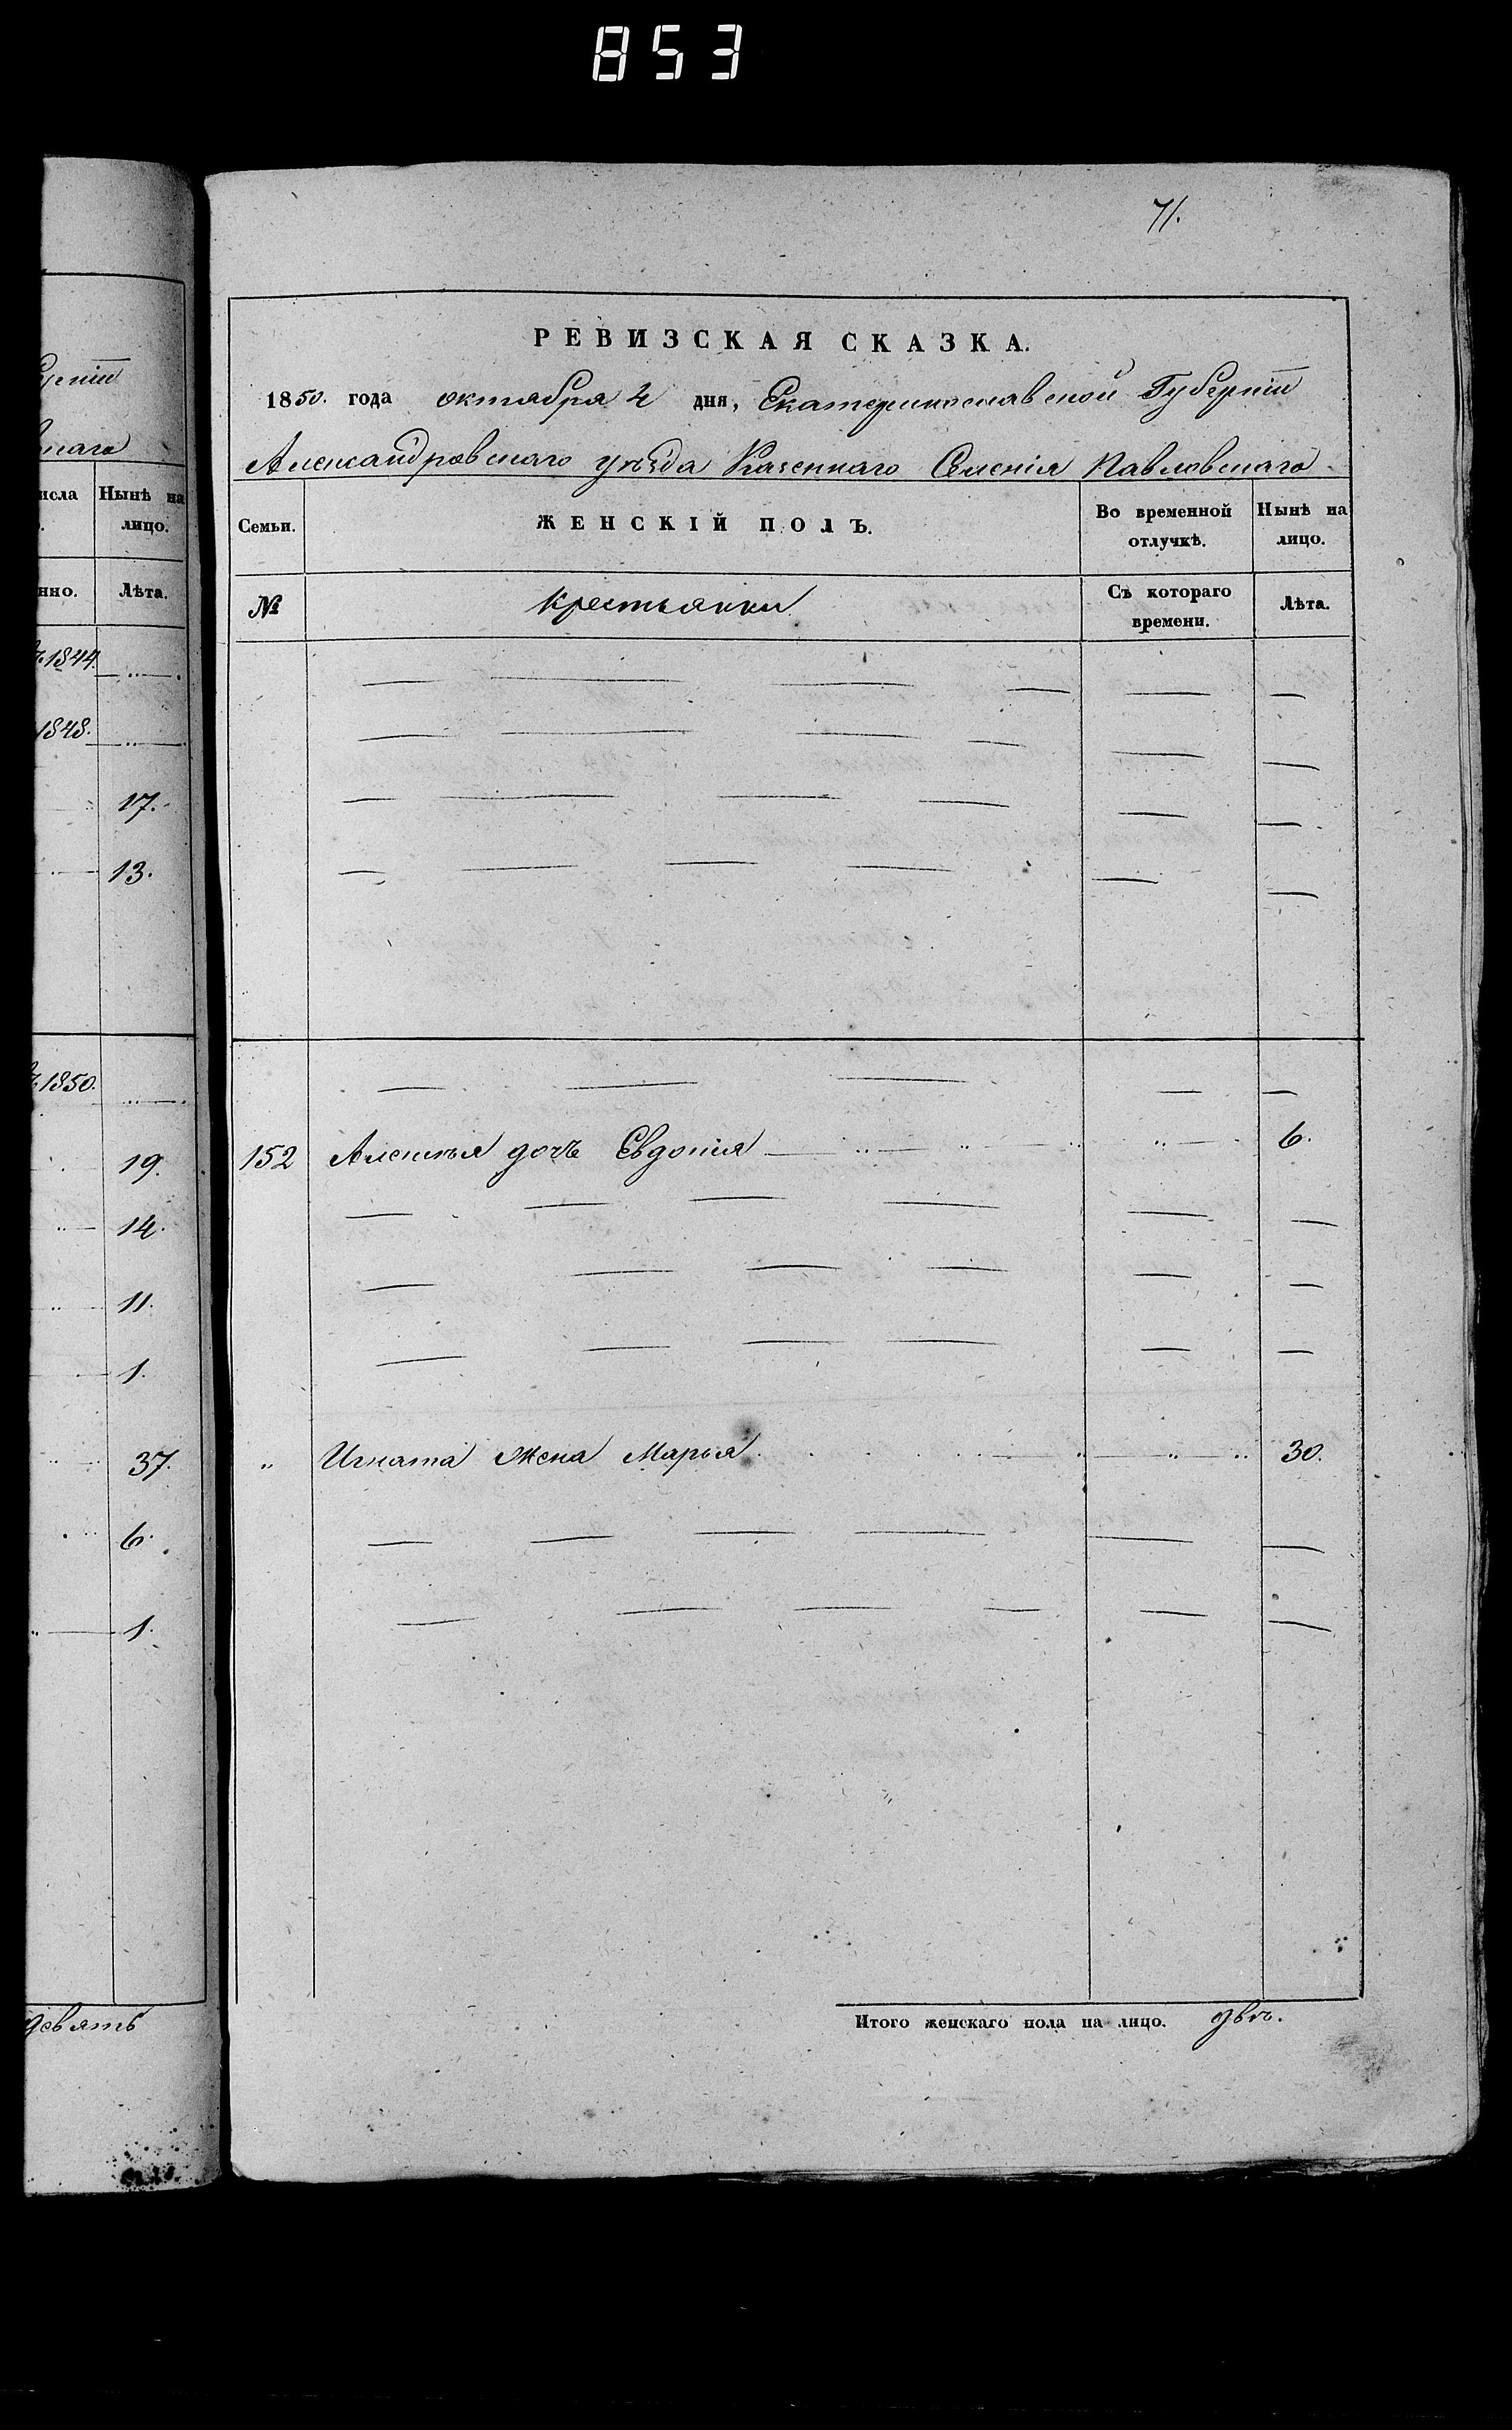 853
71.
РЕВИЗСКАЯ СКАЗКА.
1850. года октября 4 дня, Екатеринославской Губерніи
Александровскаго уѣзда Казеннаго Селенія Павловскаго
Семьи. ЖЕНСКІЙ ПОЛЪ. Во временной отлучкѣ. Нынѣ на лицо.
№ Крестьянки Съ котораго времени. Лѣта.
152 Алексѣя дочь Евдокія 6.
" Игната жена Марья 30.
Итого женскаго пола на лицо. двѣ.
Нынѣ на
лицо.
Лѣта.
1844.
1848.
17.
13.
1850.
19.
14.
11.
1.
37.
6.
1.
девять